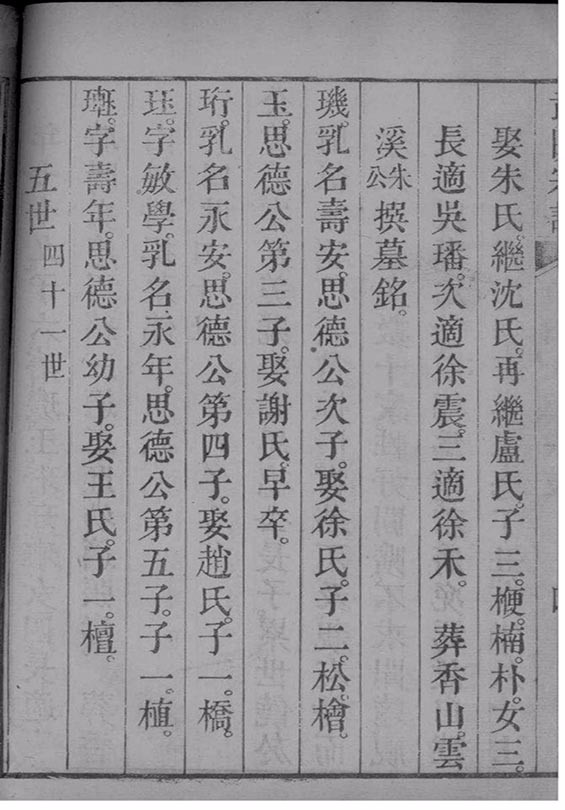 娶朱氏。繼沈氏。再繼盧氏。子三。楩。楠。朴。女三。
長適吳璠。次適徐震。三適徐禾。　葬香山。雲
溪朱公撰墓銘。
璣。乳名壽安。思德公次子。娶徐氏。子二。松。檜。
玉。思德公第三子。娶謝氏。早卒。
珩。乳名永安。思德公第四子。娶趙氏。子一。橋。
珏。字敏學。乳名永年。思德公第五子。子一。植。
字壽年。思德公幼子。娶王氏。子一。檀。
五世 四十一世